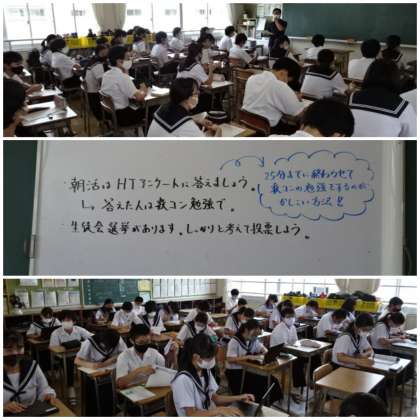 ・朝活はHTアンケートに答えましょう。
↳ 答えた人は数コン勉強で。
・生徒会選挙があります。しっかりと考えて投票しよう。
25分までに終わらせて
数コンの勉強をするのが
かしこい方法!!